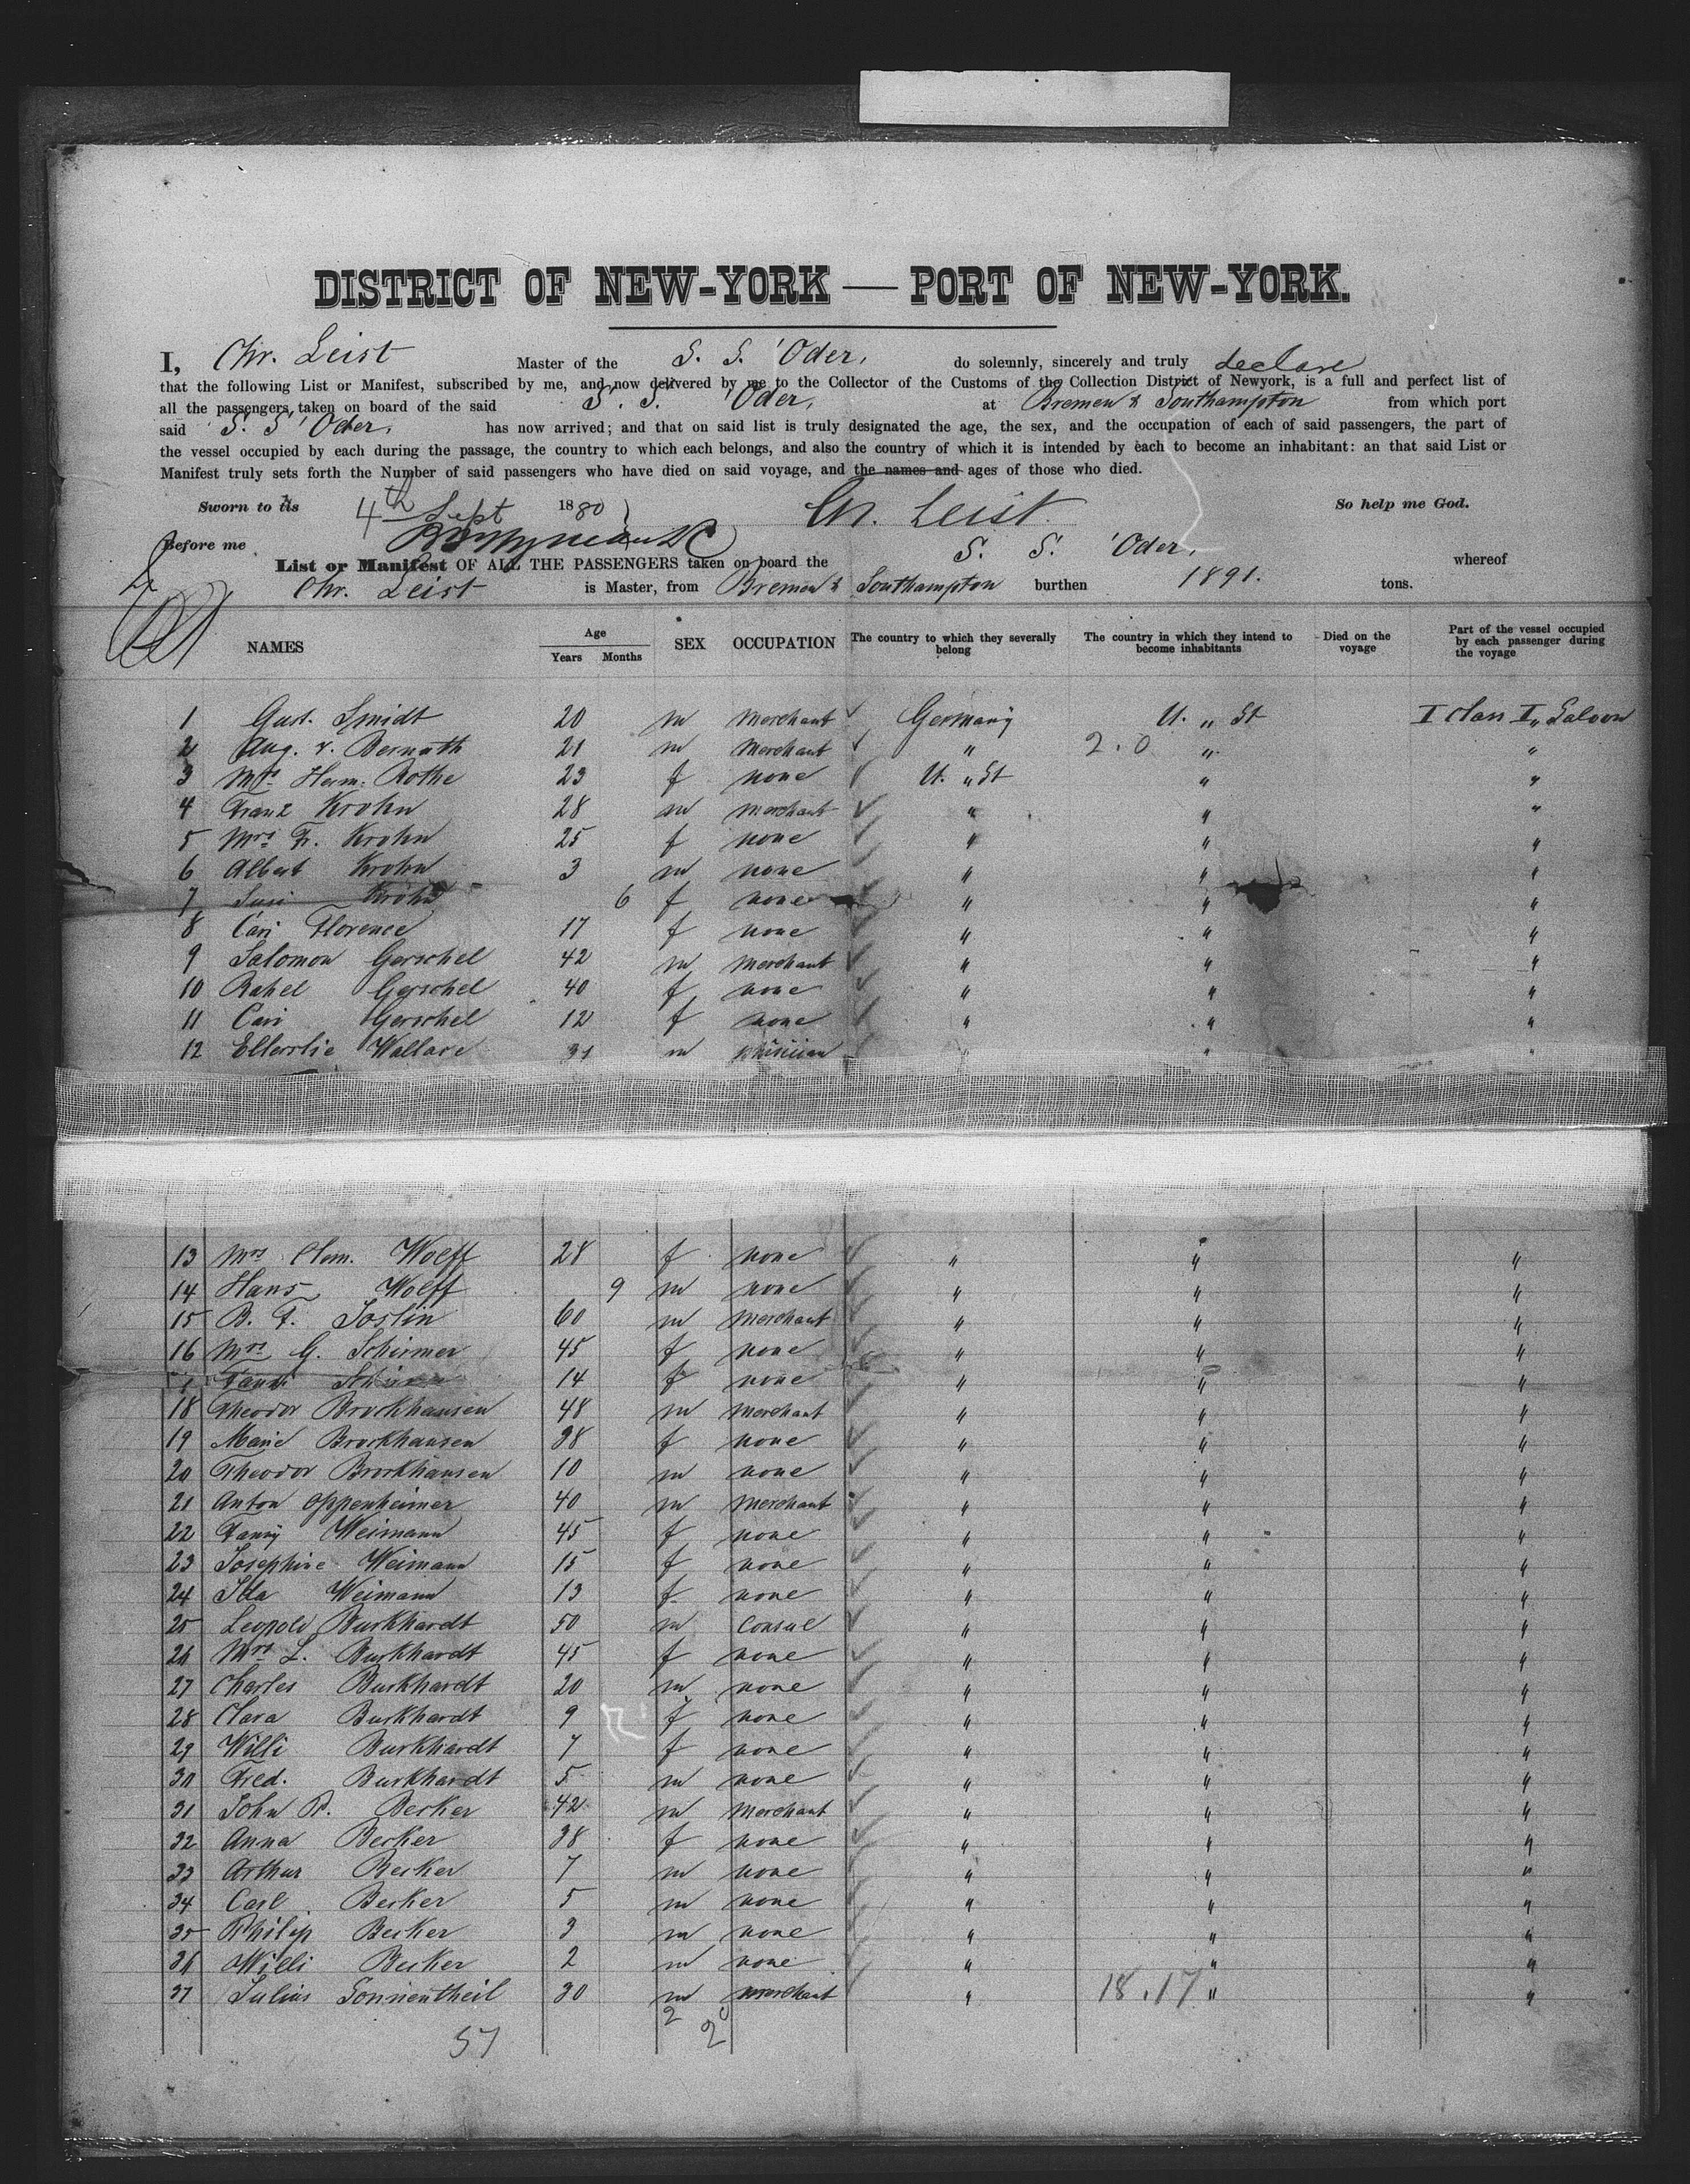 DISTRICT OF NEW-YORK — PORT OF NEW-YORK.
I, Chr. Leist Master of the S. S. 'Oder, do solemnly, sincerely and truly declare
that the following List or Manifest, subscribed by me, and now delivered by me to the Collector of the Customs of the Collection District of Newyork, is a full and perfect list of
all the passengers taken on board of the said S. S. 'Oder, at Bremen & Southampton from which port
said S. S 'Oder, has now arrived; and that on said list is truly designated the age, the sex, and the occupation of each of said passengers, the part of
the vessel occupied by each during the passage, the country to which each belongs, and also the country of which it is intended by each to become an inhabitant: an that said List or
Manifest truly sets forth the Number of said passengers who have died on said voyage, and the names and ages of those who died.
Sworn to 4th Sept 1880 Chr. Leist. So help me God.
Before me
List or Manifest OF ALL THE PASSENGERS taken on board the S. S. 'Oder, whereof
Chr. Leist is Master, from Bremen & Southampton burthen 1891. tons.
NAMES Age Years Months SEX OCCUPATION The country to which they severally belong The country in which they intend to become inhabitants Died on the voyage Part of the vessel occupied by each passenger during the voyage
1 Gust. Smidt 20 m Merchant Germany U. " St I Class I " Saloon
2 Aug. v. Bernuth 21 m Merchant " 2.0 " "
3 Mrs Herm. Rothe 23 f none U. " St " "
4 Franz Krohn 28 m Merchant " " "
5 Mrs Fr. Krohn 25 f none " " "
6 Albert Krohn 3 m none " " "
7 Susi Krohn 6 f none " " "
8 Cari Florence 17 f none " " "
9 Salomon Gerschel 42 m Merchant " " "
10 Rahel Gerschel 40 f none " " "
11 Cari Gerschel 12 f none " " "
12 Ellerslie Wallace 31 m " " "
13 Mrs Clem. Wolff 28 f none " " "
14 Hans Wolff 9 m none " " "
15 B. F. Joslin 60 m Merchant " " "
16 Mrs G. Schirmer 45 f none " " "
Fanni 14 f none " " "
18 Theodor Brockhausen 48 m Merchant " " "
19 Marie Brockhausen 38 f none " " "
20 Theodor Brockhausen 10 m none " " "
21 Anton Oppenheimer 40 m Merchant " " "
22 Fanny Weimann 45 f none " " "
23 Josephine Weimann 15 f none " " "
24 Ida Weimann 13 f none " " "
25 Leopold Burkhardt 50 m Consul " " "
26 Mrs L. Burkhardt 45 f none " " "
27 Charles Burkhardt 20 m none " " "
28 Clara Burkhardt 9 f none " " "
29 Willi Burkhardt 7 f none " " "
30 Fred. Burkhardt 5 m none " " "
31 John P. Becker 42 m Merchant " " "
32 Anna Becker 38 f none " " "
33 Arthur Becker 7 m none " " "
34 Carl Becker 5 m none " " "
35 Philip Becker 3 m none " " "
36 Willi Becker 2 m none " " "
37 Julius Sonnentheil 30 m Merchant " 18.17 " "
37